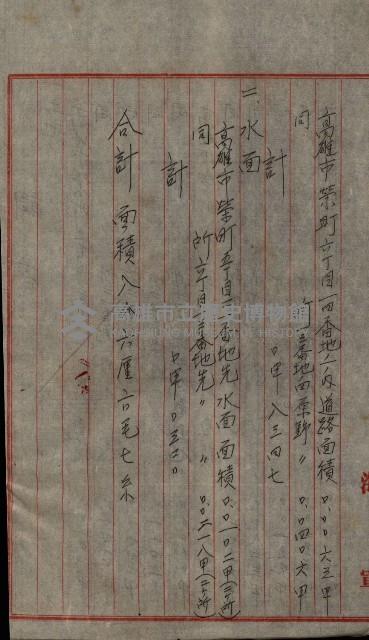 高雄市榮町六丁目一四番地ノ內道路面積 〇.〇〇六三甲
同 番地田原野〃 〇.〇四〇六甲
計 〇甲八三四七
二、水面
高雄市榮町五丁目一番地先水面面積〇.〇一〇二甲(三ケ所)
同 所六丁目三番地先〃 〃 〇.〇二一八甲(二ケ所)
計 〇甲〇三二〇
合計面積八 六厘六毛七糸
高雄市立歷史博物館
KAOHSIUNG MUSEUM OF HISTORY